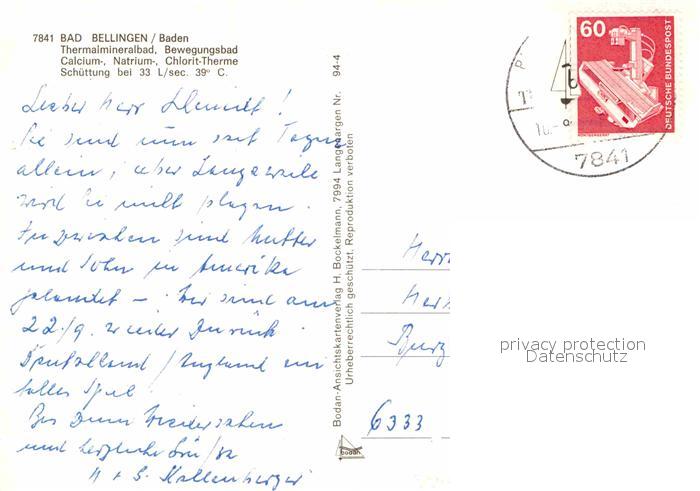 7841 BAD BELLINGEN / Baden
Thermalmineralbad, Bewegungsbad
Calcium-, Natrium-, Chlorit-Therme
Schüttung bei 33 L/sec. 39° C.
Lieber Herr Schmidt!
Sie sind nun seit Tagen
allein, aber Langeweile
wird Sie nicht plagen.
Inzwischen sind Mutter
und Sohn in Amerika
gelandet – Wir sind am
22./9. wieder zurück.
Deutschland / England ein
tolles Spiel.
Bis zum Wiedersehen
und herzliche Grüße
H + G. Kallenberger
Bodan-Ansichtskartenverlag H. Bockelmann, 7994 Langenargen Nr. 94-4
Urheberrechtlich geschützt, Reproduktion verboten
bodan
60
DEUTSCHE BUNDESPOST
7841
Herrn
Burg
6333
privacy protection
Datenschutz